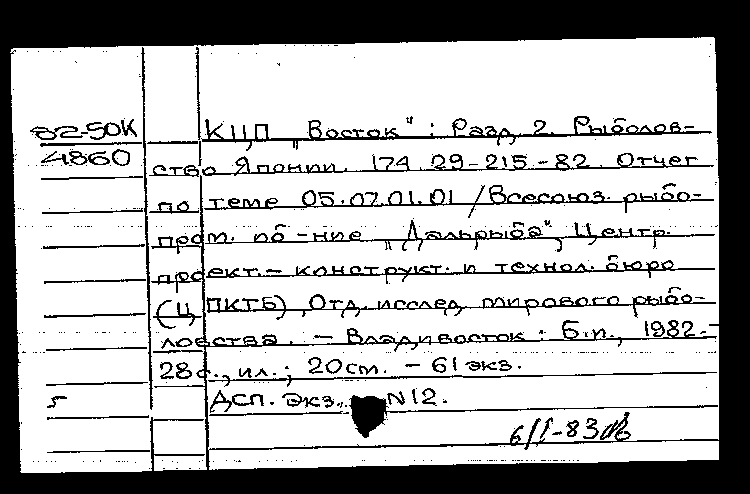 82-50К
4860
КЦП „Восток": Разд. 2. Рыболов-
ство Японии. 174.29-215.-82. Отчет
по теме 05.07.01.01 / Всесоюз. рыбо-
пром. об-ние „Дальрыба", Центр.
проект.- конструкт. и технол. бюро
(ЦПКТБ), Отд. исслед. мирового рыбо-
ловства. - Владивосток: Б.и., 1982.-
28с., ил.; 20см. - 61 экз.
ДСП. экз. N12.
6/I-83